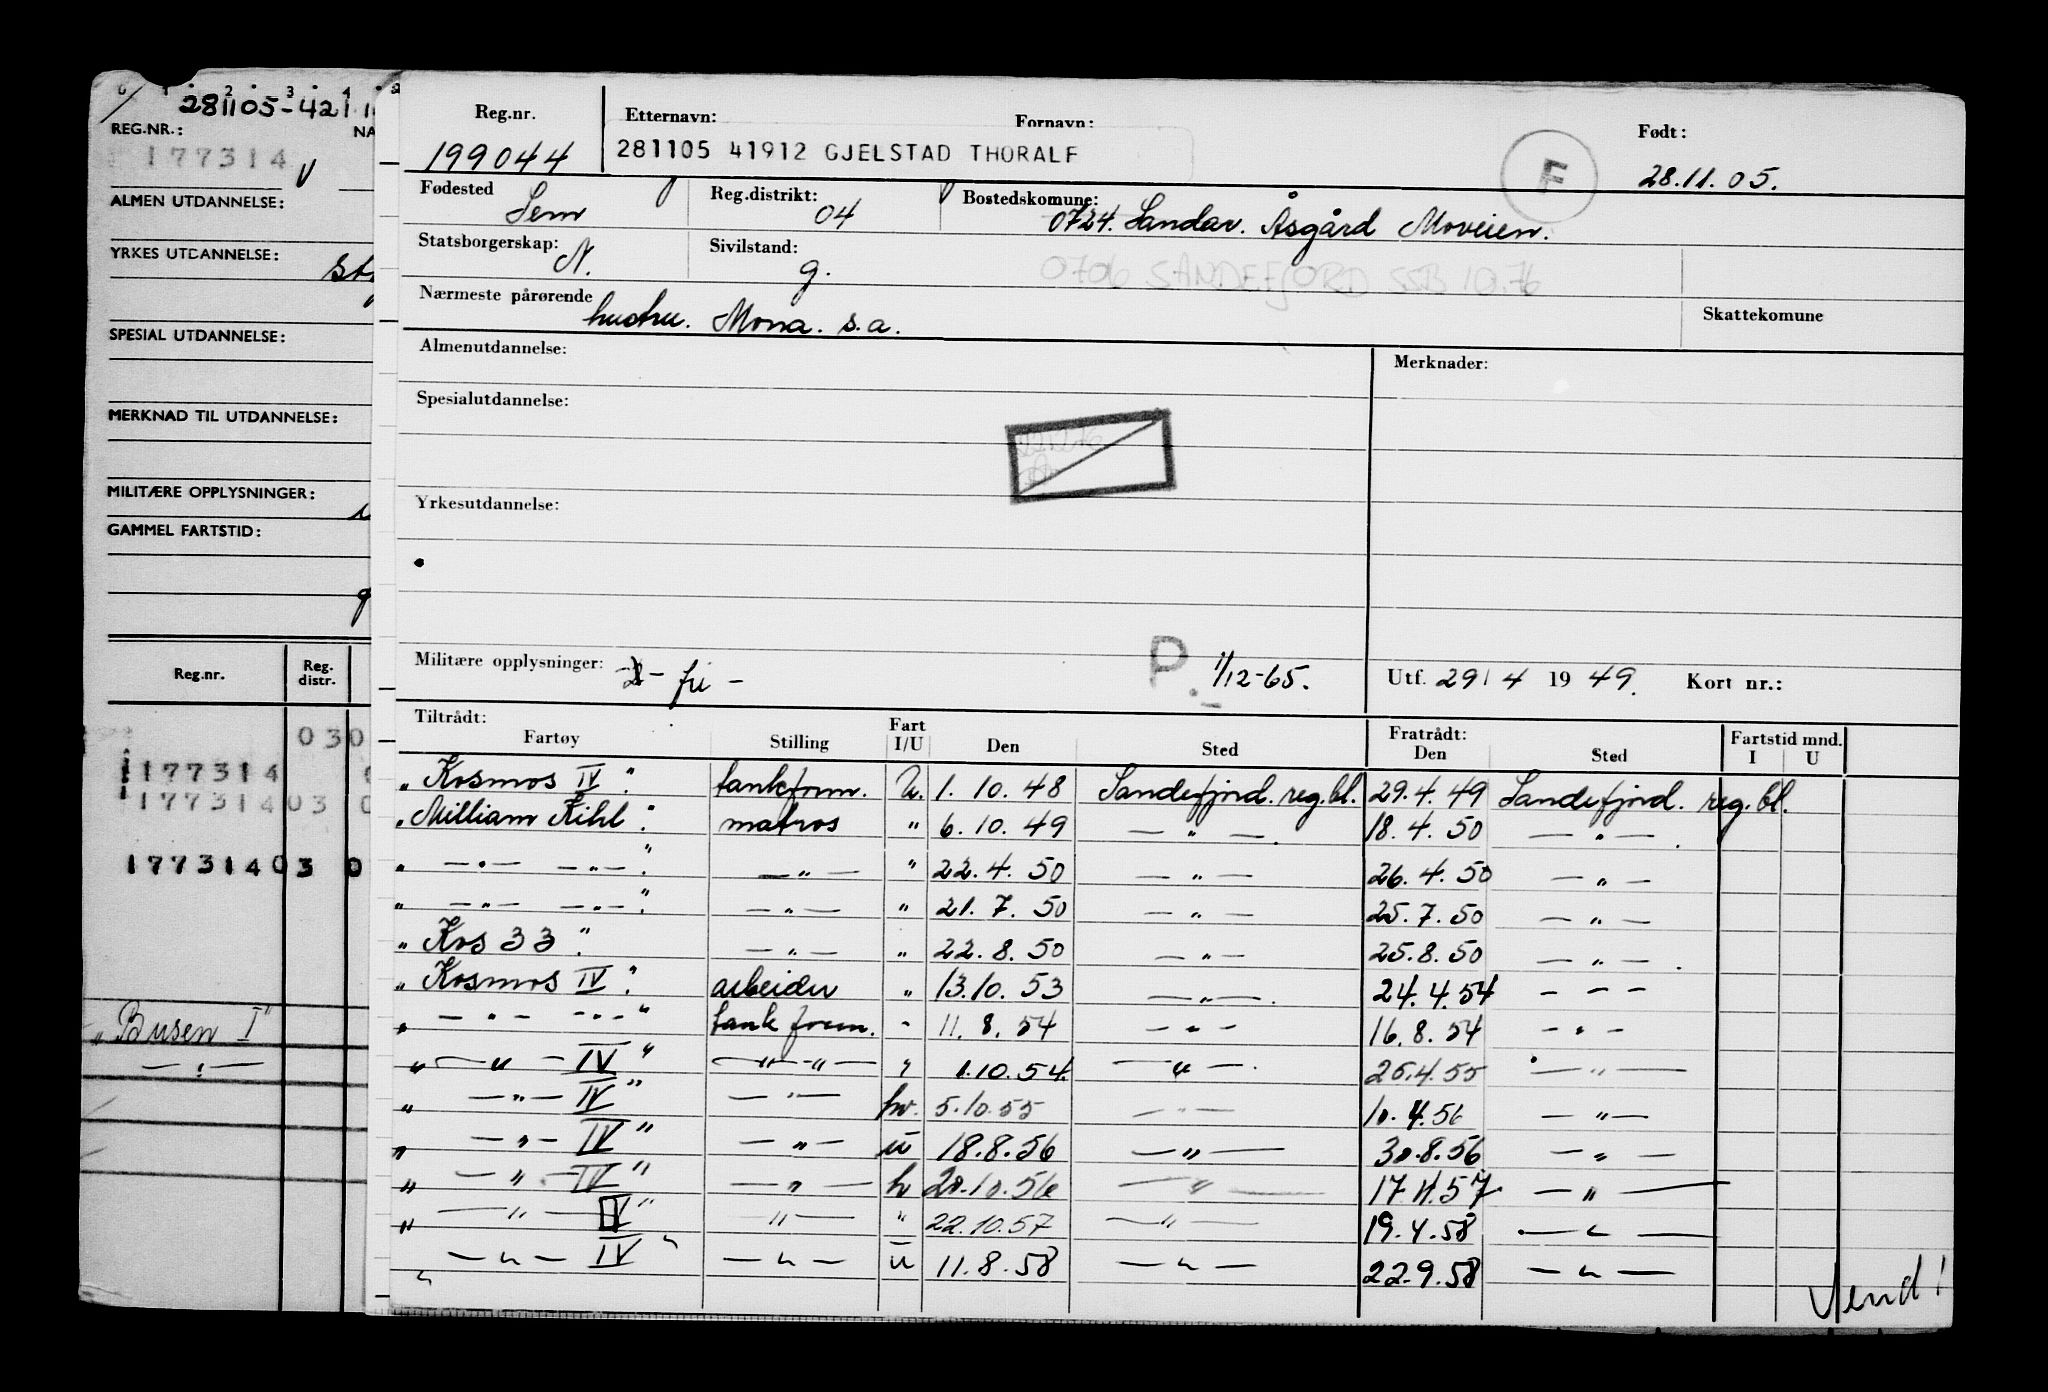 281105-421
REG.NR.: NA
177314 V
ALMEN UTDANNELSE:
YRKES UTDANNELSE:
SPESIAL UTDANNELSE:
MERKNAD TIL UTDANNELSE:
MILITÆRE OPPLYSNINGER:
GAMMEL FARTSTID:
Reg.nr. Reg. distr.
030
177314
17731403 0
17731403 0
"Busen I"
— " —
Reg.nr. Etternavn: Fornavn: Født:
199044 281105 41912 GJELSTAD THORALF F 28.11.05.
Fødested Sem Reg.distrikt: 04 Bostedskomune: 0724. Sandar. Åsgård Moveien.
Statsborgerskap: N. Sivilstand: g. 0706 SANDEFJORD SSB 10.76
Nærmeste pårørende hustru. Mona. s.a. Skattekomune
Almenutdannelse: Merknader:
Spesialutdannelse:
Yrkesutdannelse:
Militære opplysninger: - fri - P. 1/12-65. Utf. 29/4 1949. Kort nr.:
Tiltrådt: Fartøy Stilling Fart I/U Den Sted Fratrådt: Den Sted Fartstid mnd. I U
"Kosmos IV" tankform. U. 1.10.48 Sandefjord. reg.bl. 29.4.49 Sandefjord. reg.bl.
"William Rihl" matros " 6.10.49 — " — 18.4.50 — " —
" — " — — " — " — " — " 22.4.50 — " — 26.4.50 — " —
" — " — — " — " — " — " 21.7.50 — " — 25.7.50 — " —
"Kos 33" — " — " 22.8.50 — " — 25.8.50 — " —
"Kosmos IV" arbeider " 13.10.53 — " — 24.4.54 — " —
" — " — — " — " tank form. " 11.8.54 — " — 16.8.54 — " —
" — " — IV" — " — " — " 1.10.54. — " — 26.4.55 — " —
" — " — IV" — " — hv. 5.10.55 — " — 10.4.56 — " —
" — " — IV" — " — u 18.8.56 — " — 30.8.56 — " —
" — " — IV" — " — hv 20.10.56 — " — 17.4.57 — " —
" — " — V" — " — " 22.10.57 — " — 19.4.58 — " —
" — " — IV" — " — u 11.8.58 — " — 22.9.58 — " —
Vend!